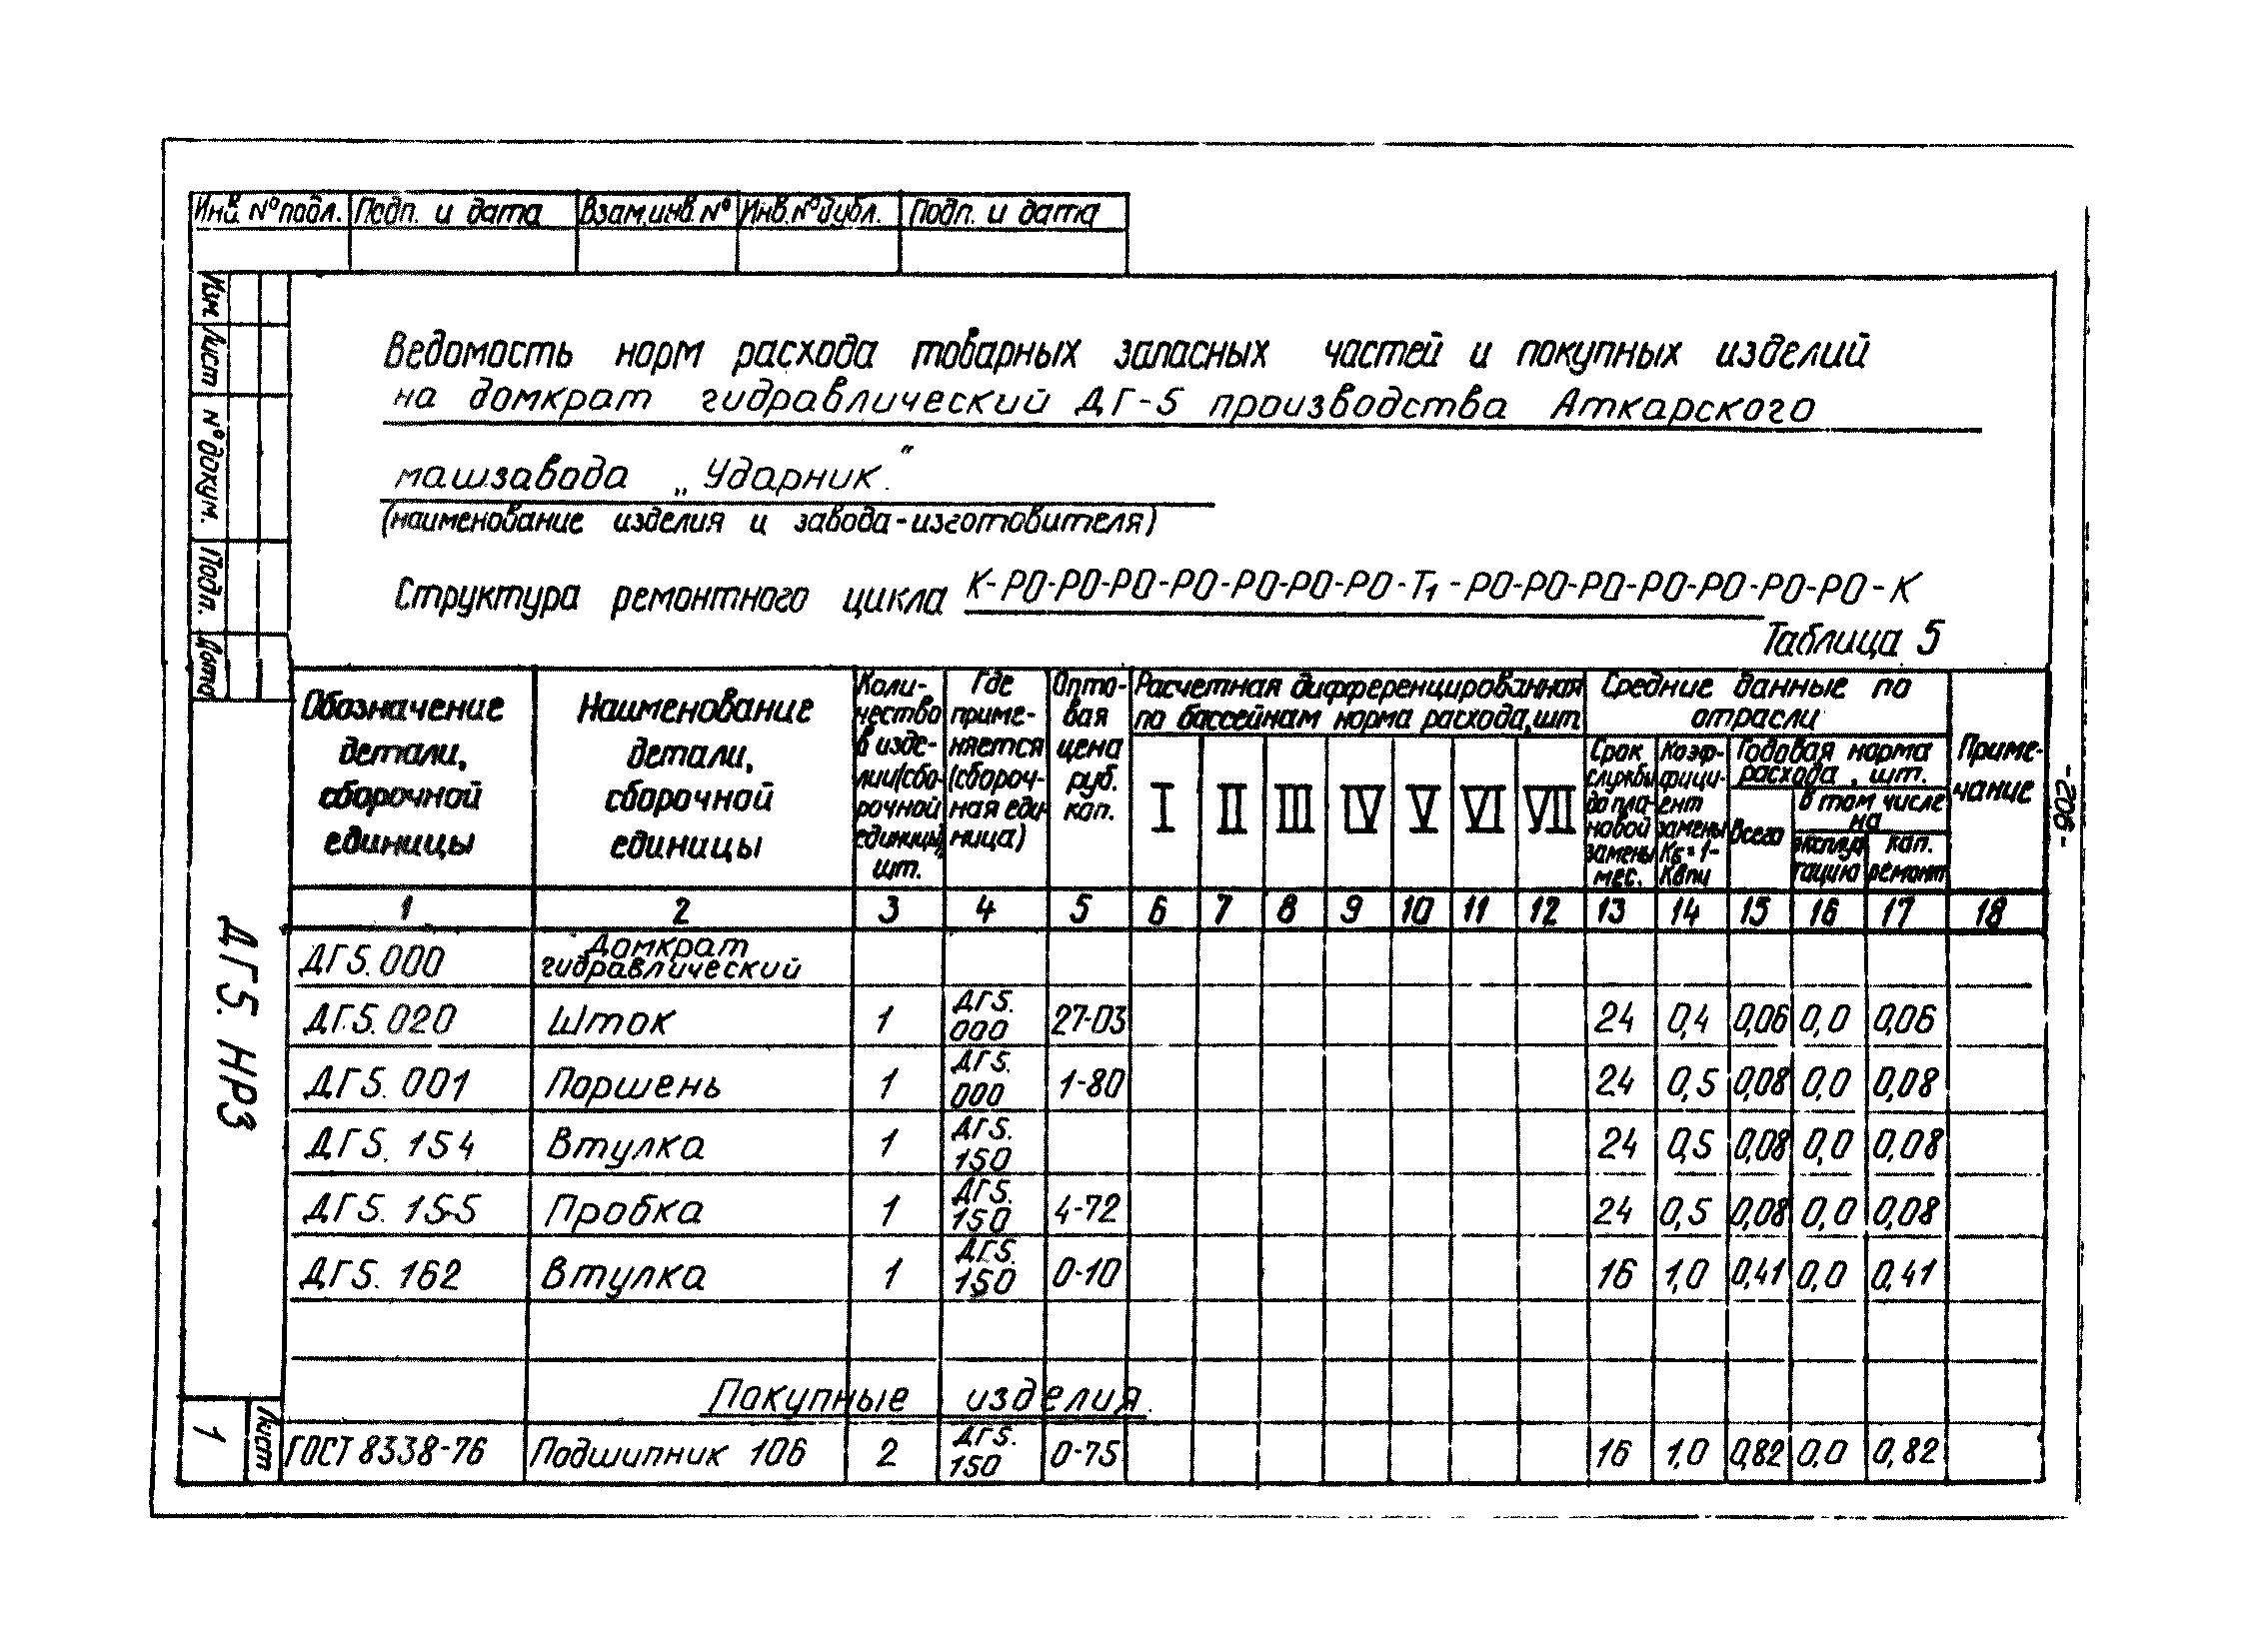 Инв. № подл. Подп. и дата Взам.инв.№ Инв.№дубл. Подп. и дата
Изм Лист № докум. Подп. Дата
Ведомость норм расхода товарных запасных частей и покупных изделий
на домкрат гидравлический ДГ-5 производства Аткарского
машзавода „Ударник."
(наименование изделия и завода-изготовителя)
Структура ремонтного цикла К-РО-РО-РО-РО-РО-РО-РО-Т1-РО-РО-РО-РО-РО-РО-РО-К
Таблица 5
Обозначение детали, сборочной единицы
Наименование детали, сборочной единицы
Количество в изделии (сборочной единицы), шт.
Где применяется (сборочная единица)
Оптовая цена руб. кап.
Расчетная дифференцированная по бассейнам норма расхода, шт.
I II III IV V VI VII
Средние данные по отрасли
Срок службы до плановой замены мес.
Коэффициент замены Кз=1-Квпи
Годовая норма расхода, шт.
Всего
в том числе на
эксплуатацию
кап. ремонт
Примечание
1 2 3 4 5 6 7 8 9 10 11 12 13 14 15 16 17 18
ДГ5.000 Домкрат гидравлический
ДГ5.020 Шток 1 ДГ5.000 27-03 24 0,4 0,06 0,0 0,06
ДГ5.001 Поршень 1 ДГ5.000 1-80 24 0,5 0,08 0,0 0,08
ДГ5.154 Втулка 1 ДГ5.150 24 0,5 0,08 0,0 0,08
ДГ5.155 Пробка 1 ДГ5.150 4-72 24 0,5 0,08 0,0 0,08
ДГ5.162 Втулка 1 ДГ5.150 0-10 16 1,0 0,41 0,0 0,41
Покупные изделия.
ГОСТ 8338-76 Подшипник 106 2 ДГ5.150 0-75 16 1,0 0,82 0,0 0,82
ДГ5. НР3
Лист 1
-206-